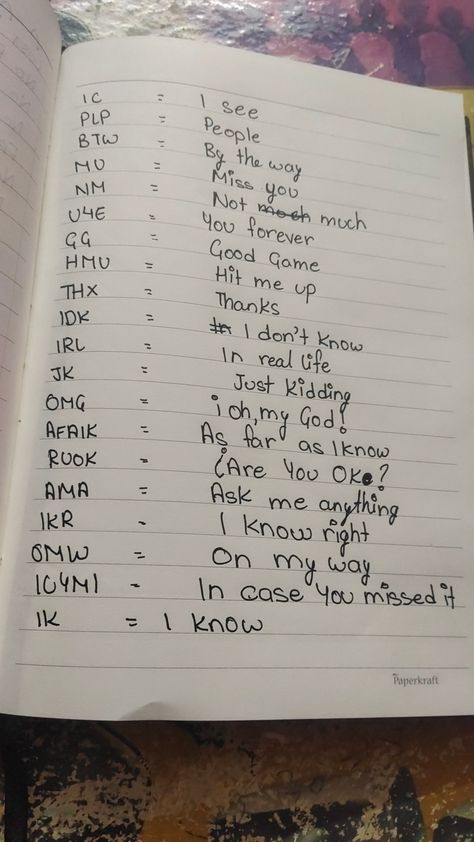 IC = I see
PLP = People
BTW = By the way
MU = Miss you
NM = Not much
U4E = You forever
GG = Good Game
HMU = Hit me up
THX = Thanks
IDK = I don't know
IRL = In real life
JK = Just Kidding
OMG = ¡oh, my God!
AFAIK = As far as I know
RUOK = ¿Are You OKe?
AMA = Ask me anything
IKR - I know right
OMW = On my way
IC4MI - In case You missed it
IK = I know
Paperkraft